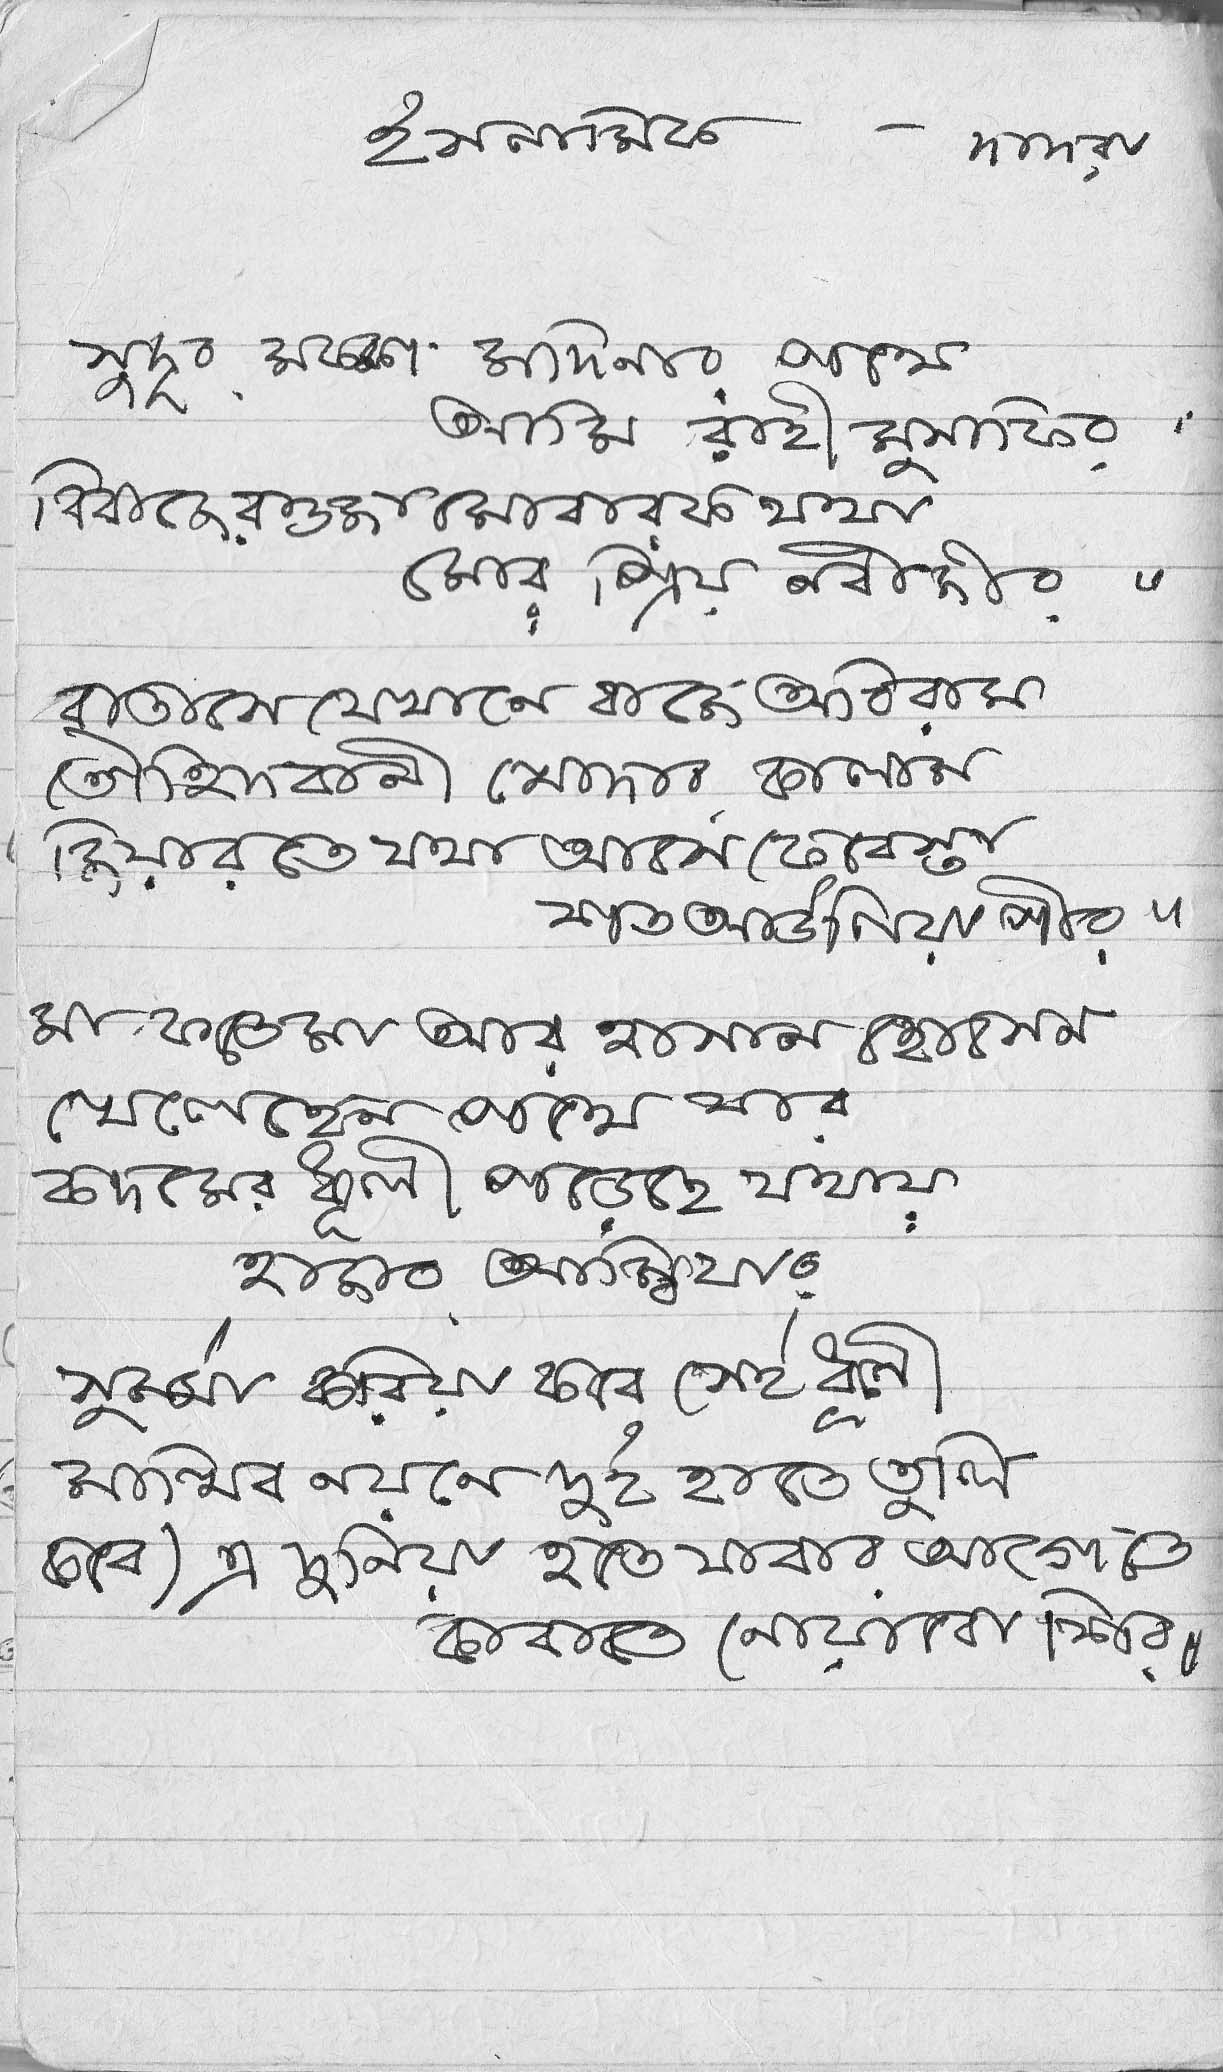 ইসলামিক — দাদরা
সুদূর মক্কা মদিনার পথে
আমি রাহী মুসাফির ।
বিরাজে রওজা মোবারক যথা
মোর প্রিয় নবীজীর ॥
বাতাসে যেখানে বাজে অবিরাম
তৌহিদ বাণী খোদার কালাম
জিয়ারতে যথা আসে ফেরেস্তা
শত আউলিয়া পীর ॥
মা ফাতেমা আর হাসান হোসেন
খেলেছেন পথে যার
কদমের ধূলী পড়েছে যথায়
হাজার আম্বিয়ার
সুরমা করিয়া কবে সেই ধূলী
মাখিব নয়নে দুই হাতে তুলি
কবে) এ দুনিয়া হতে যাবার আগেতে
কাবাতে নোয়াবো শির ॥